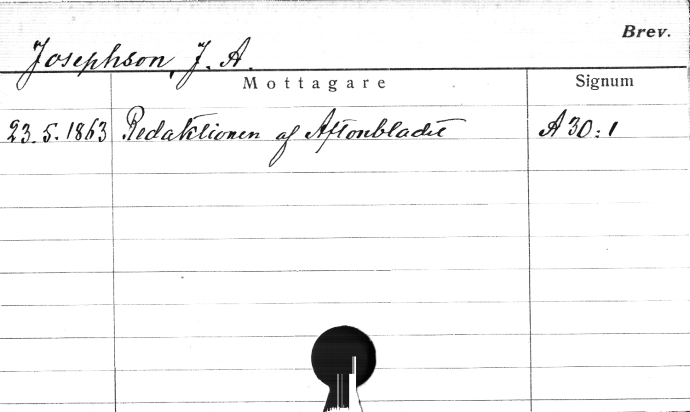 Brev.
Josephson, J. A.
Mottagare Signum
23. 5. 1863 Redaktionen af Aftonbladet A 30:1